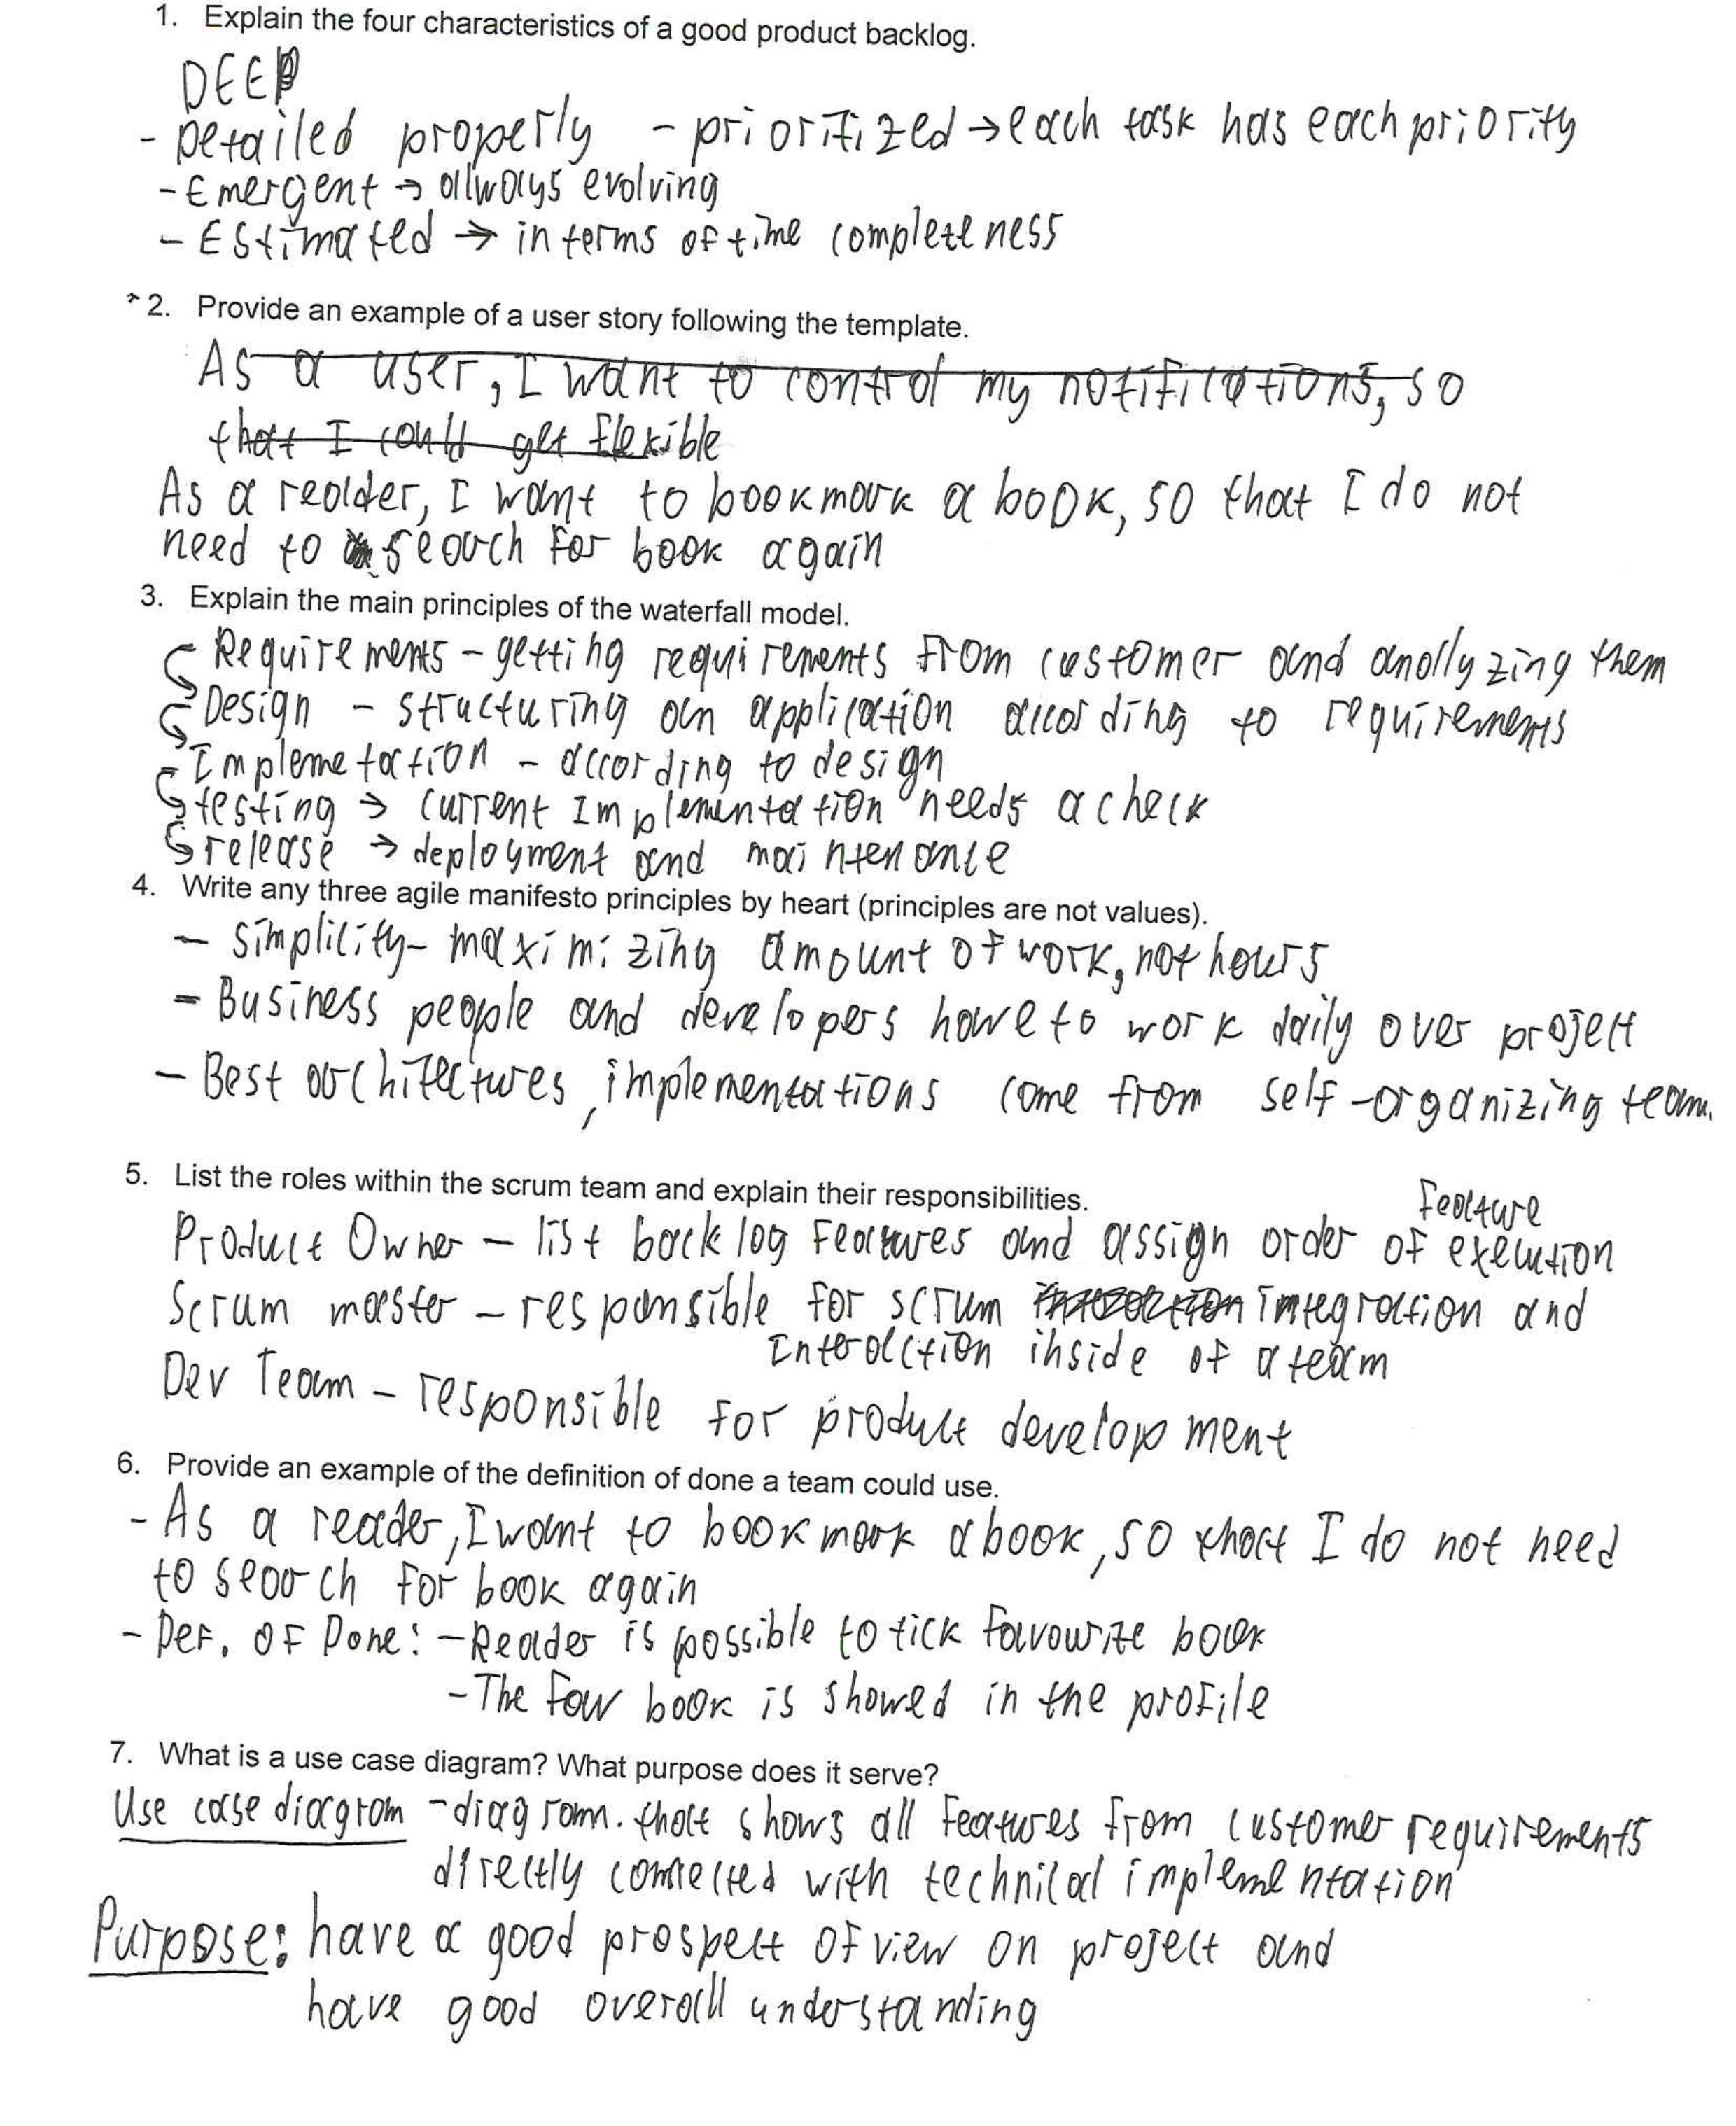 1. Explain the four characteristics of a good product backlog.
DEEP
- Detailed properly - prioritized → each task has each priority
- Emergent → always evolving
- Estimated → in terms of time completeness
* 2. Provide an example of a user story following the template.
As a user, I want to control my notifications, so
that I could get flexible
As a reader, I want to bookmark a book, so that I do not
need to search for book again
3. Explain the main principles of the waterfall model.
Requirements - getting requirements from customer and anollyzing them
Design - structuring an application according to requirements
Implemetation - according to design
testing → current Implementation needs a check
release → deployment and maintenance
4. Write any three agile manifesto principles by heart (principles are not values).
- simplicity - maximizing amount of work, not hours
- Business people and developers have to work daily over project
- Best architectures, implementations come from self-organizing team.
5. List the roles within the scrum team and explain their responsibilities.
Product Owner - list backlog features and assign order of feature execution
Scrum master - responsible for scrum integration and
Interaction inside of a team
Dev Team - responsible for product development
6. Provide an example of the definition of done a team could use.
- As a reader, I want to bookmark a book, so that I do not need
to search for book again
- Def. of Done: - Reader is possible to tick favourite book
- The fav book is showed in the profile
7. What is a use case diagram? What purpose does it serve?
Use case diagram - diagram. that shows all features from customer requirements
directly connected with technical implementation
Purpose: have a good prospect of view on project and
have good overall understanding